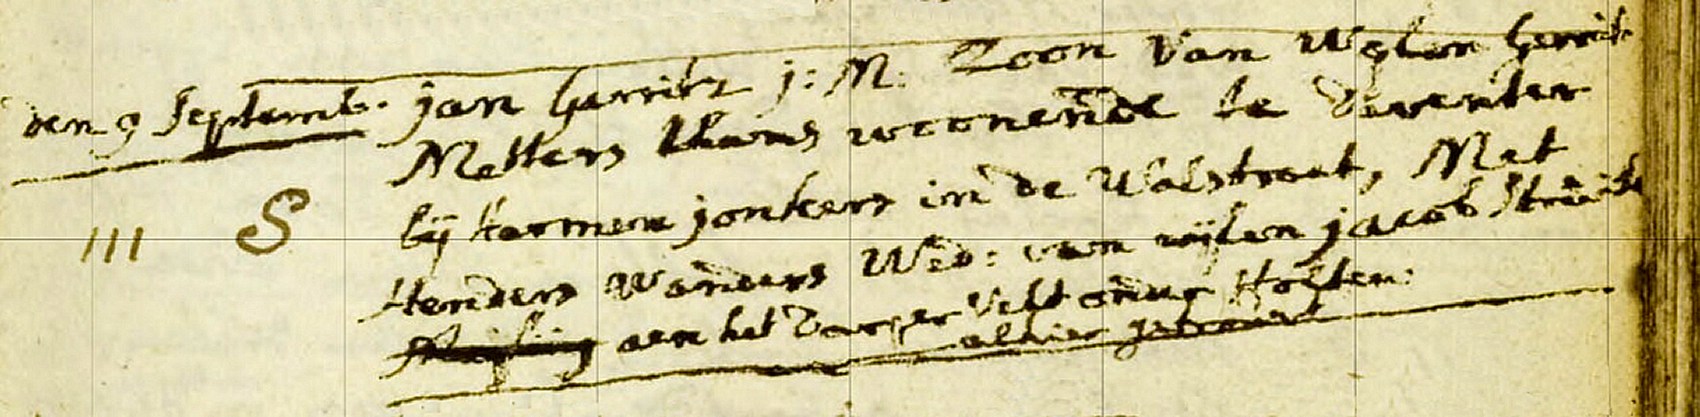 den 9 Septemb. jan Gerritz j: M: Zoon van Wylen Gerrit
Metters thans woonende te deventer
bij harmen jonkers in de Walstraat, Met
III S
Henders Wanders Wed: van wijlen jacob
aen het Dorper Velt onder Holten:
alhier getrouwt